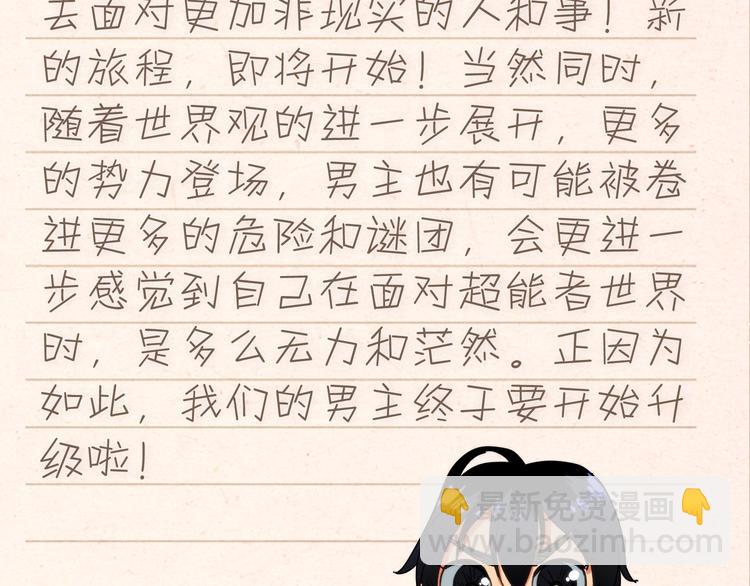 去面对更加非现实的人和事！新
的旅程，即将开始！当然同时，
随着世界观的进一步展开，更多
的势力登场，男主也有可能被卷
进更多的危险和谜团，会更进一
步感觉到自己在面对超能者世界
时，是多么无力和茫然。正因为
如此，我们的男主终于要开始升
级啦！
👇最新免费漫画👇
www.baozimh.com